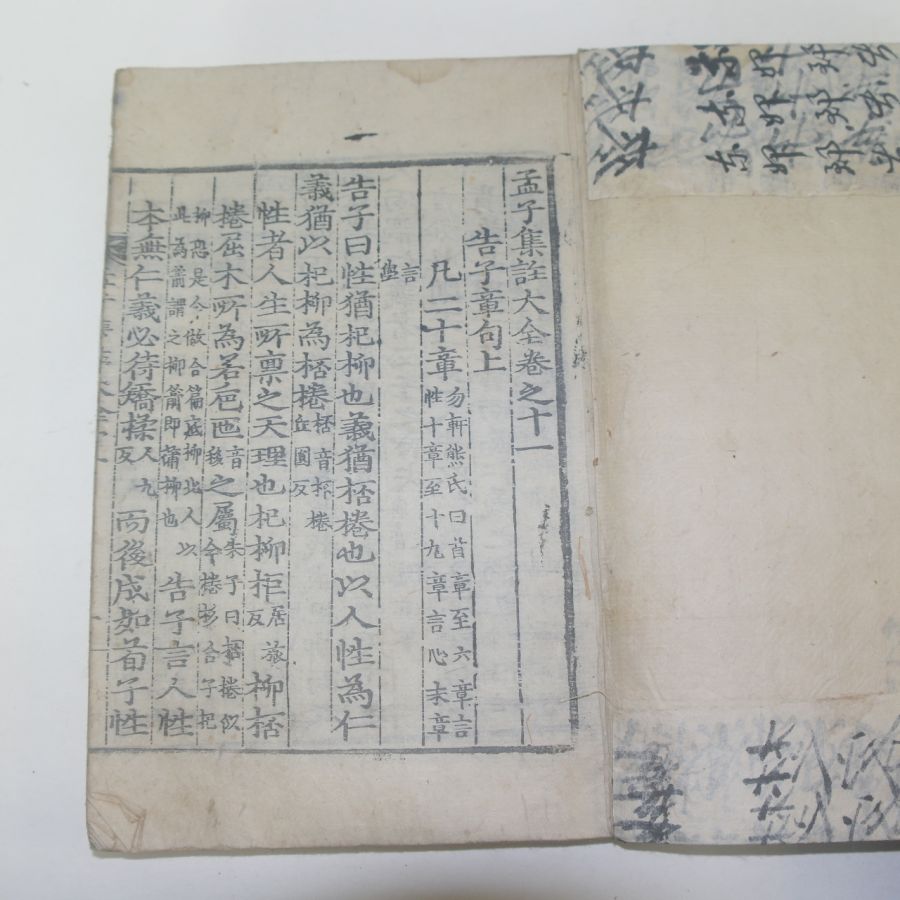 孟子集註大全卷之十一
告子章句上
凡二十章 勿軒熊氏曰首章至六章言性十章至十九章言心末章言學
告子曰性猶杞柳也義猶桮棬也以人性為仁
義猶以杞柳為桮棬 桮音杯棬丘圓反
性者人生所禀之天理也杞柳柜 居旅反 柳桮
棬屈木所為若巵匜 音移 之屬 朱子曰桮棬似今棬杉合子杞
柳恐是今做合箱底柳北人以此為箭謂之柳箭即蒲柳也 告子言人性
本無仁義必待矯揉 人九反 而後成如荀子性